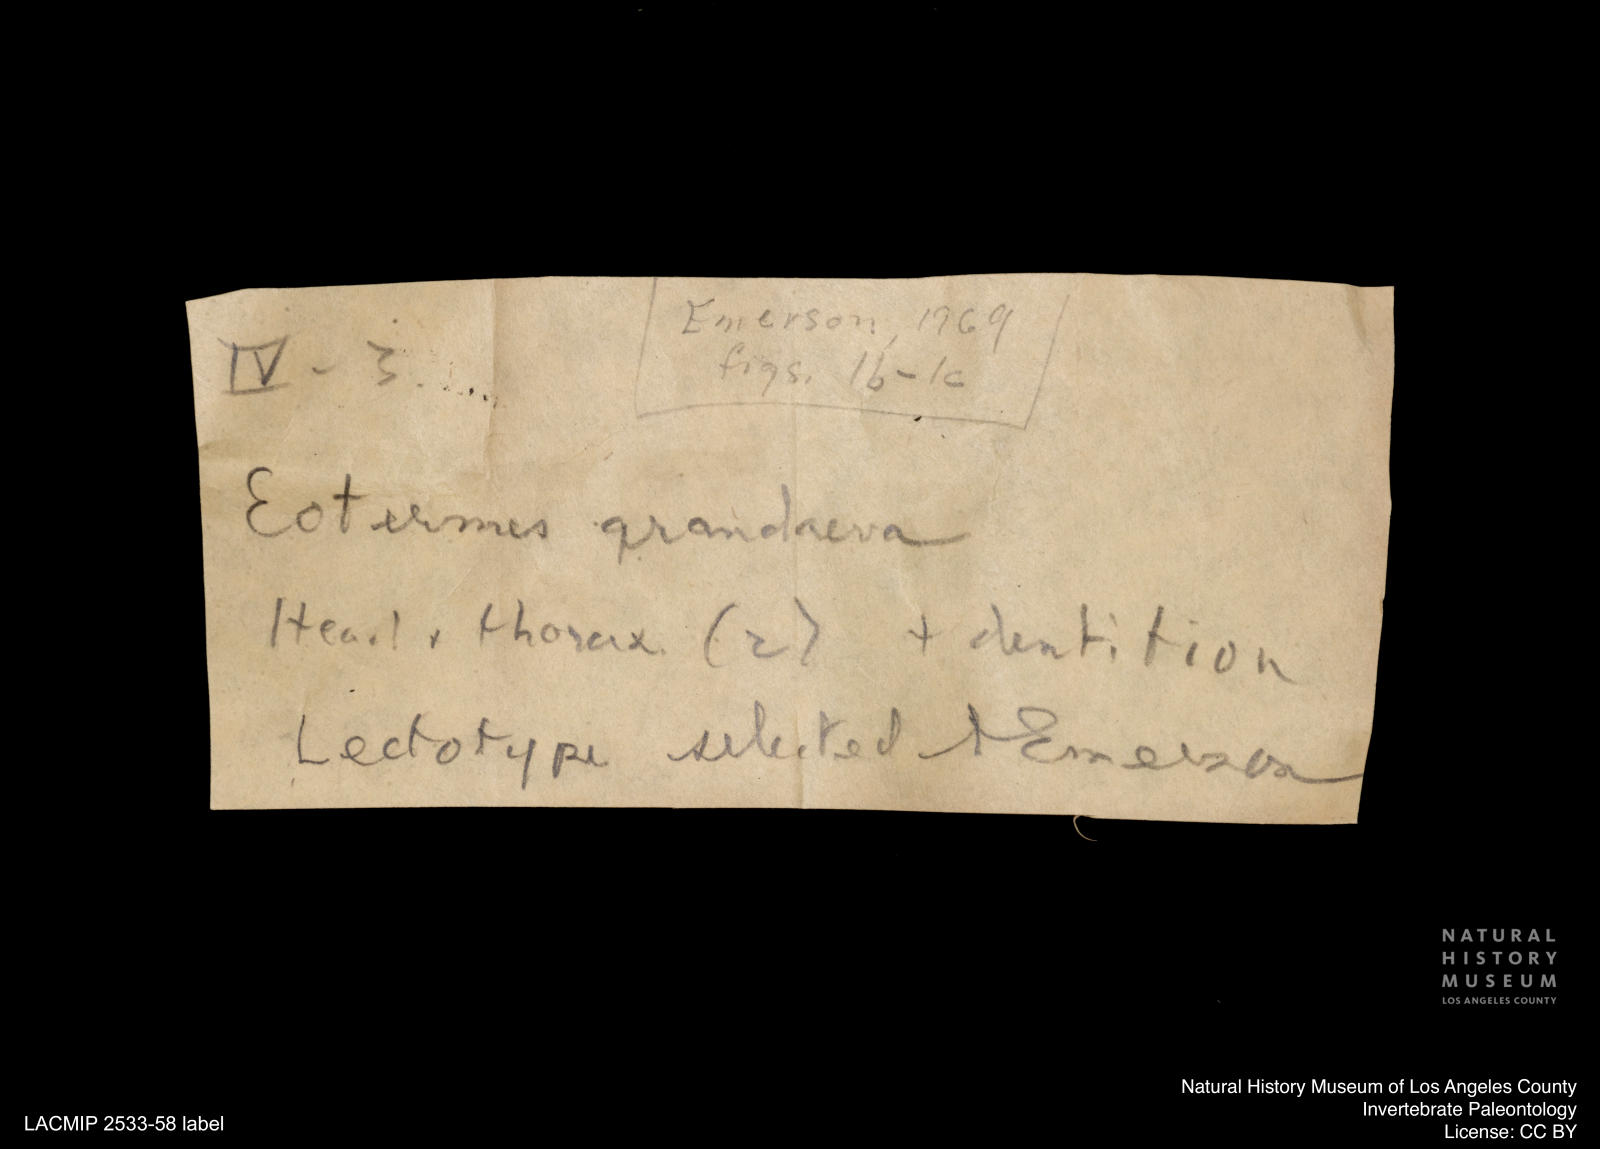 Emerson, 1969
figs. 1b-1c
IV - 3
Eotermes grandaeva
Head + thorax (2) + dentition
Lectotype selected Emerson
NATURAL
HISTORY
MUSEUM
LOS ANGELES COUNTY
Natural History Museum of Los Angeles County
Invertebrate Paleontology
License: CC BY
LACMIP 2533-58 label